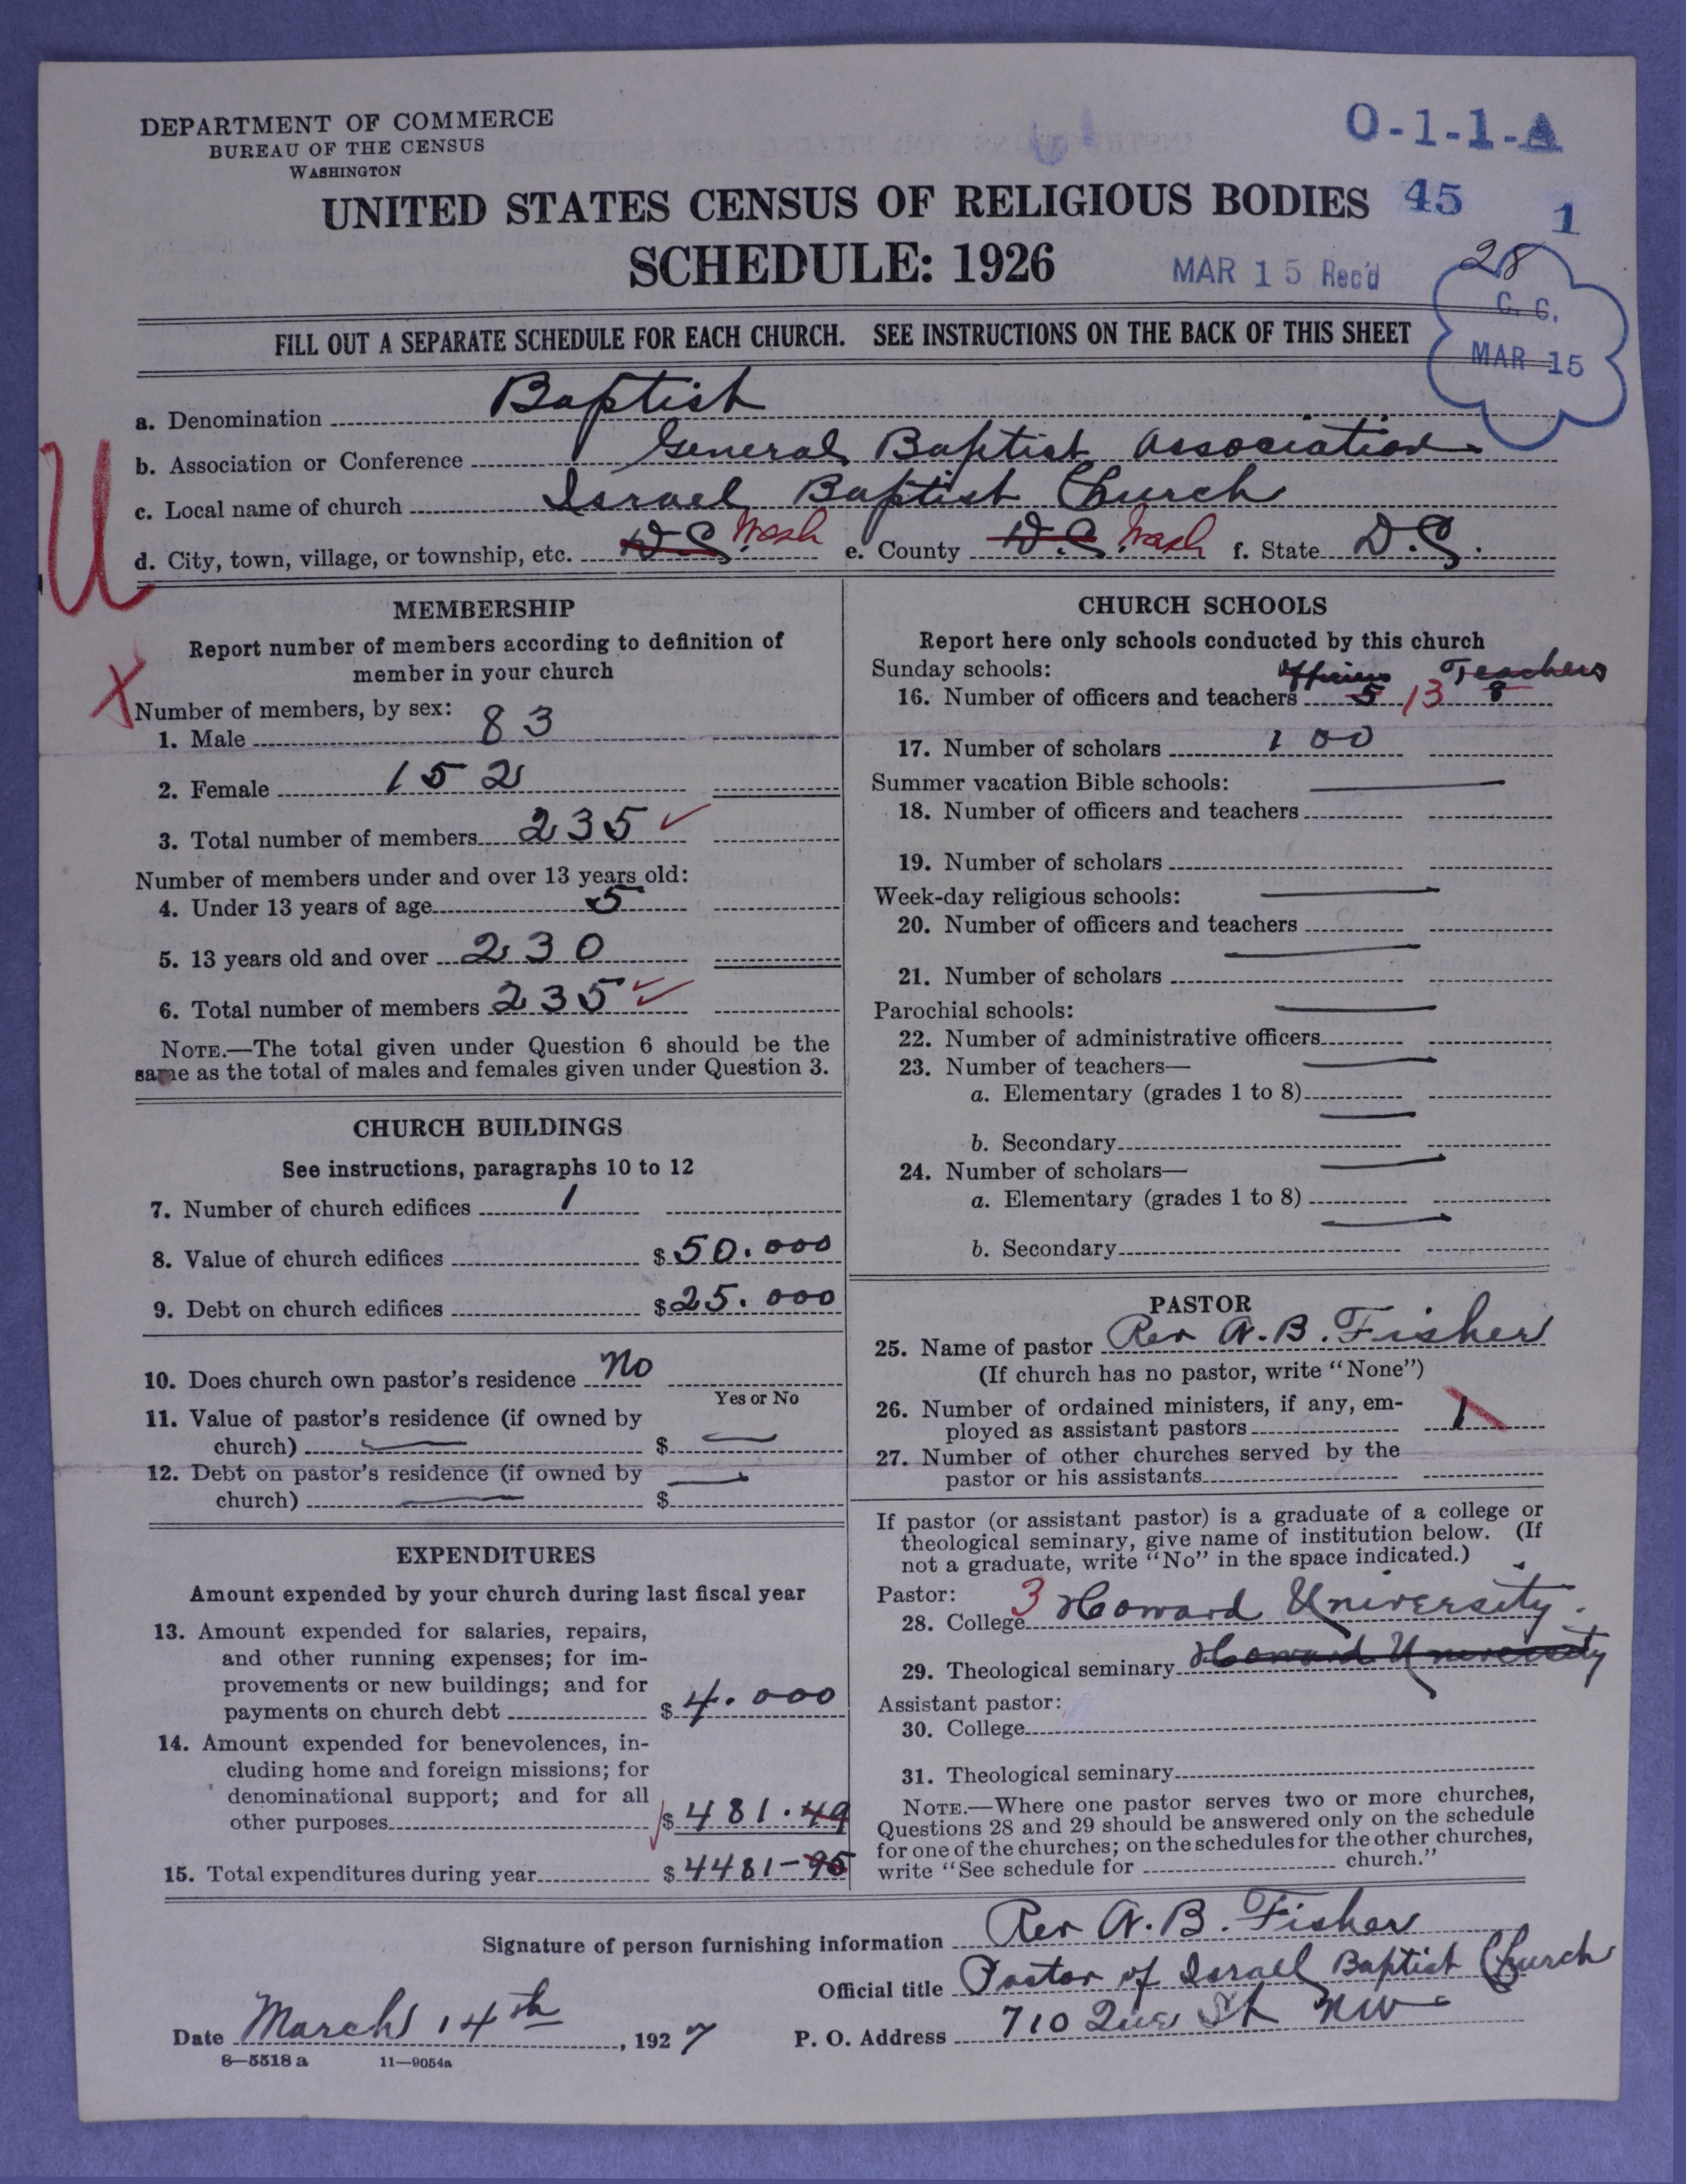 DEPARTMENT OF COMMERCE
BUREAU OF THE CENSUS
WASHINGTON
O-1-1-A
UNITED STATES CENSUS OF RELIGIOUS BODIES 45
1
SCHEDULE: 1926
MAR 15 Rec'd
28
C. C.
MAR 15
FILL OUT A SEPARATE SCHEDULE FOR EACH CHURCH. SEE INSTRUCTIONS ON THE BACK OF THIS SHEET
a. Denomination Baptist
b. Association or Conference General Baptist Association
c. Local name of church Israel Baptist Church
d. City, town, village, or township, etc. D.C. Wash e. County D.C. Wash f. State D.C.
U
X
MEMBERSHIP
Report number of members according to definition of
member in your church
Number of members, by sex:
1. Male 83
2. Female 152
3. Total number of members 235
Number of members under and over 13 years old:
4. Under 13 years of age 5
5. 13 years old and over 230
6. Total number of members 235
NOTE.—The total given under Question 6 should be the
same as the total of males and females given under Question 3.
CHURCH BUILDINGS
See instructions, paragraphs 10 to 12
7. Number of church edifices 1
8. Value of church edifices $50.000
9. Debt on church edifices $25.000
10. Does church own pastor's residence no
Yes or No
11. Value of pastor's residence (if owned by
church) — $ —
12. Debt on pastor's residence (if owned by
church) — $ —
EXPENDITURES
Amount expended by your church during last fiscal year
13. Amount expended for salaries, repairs,
and other running expenses; for im-
provements or new buildings; and for
payments on church debt $4.000
14. Amount expended for benevolences, in-
cluding home and foreign missions; for
denominational support; and for all
other purposes $481.49
15. Total expenditures during year $4481-95
CHURCH SCHOOLS
Report here only schools conducted by this church
Sunday schools: Officers Teachers
16. Number of officers and teachers 5 13 8
17. Number of scholars 100
Summer vacation Bible schools: —
18. Number of officers and teachers
19. Number of scholars
Week-day religious schools: —
20. Number of officers and teachers
—
21. Number of scholars
Parochial schools: —
22. Number of administrative officers
23. Number of teachers— —
a. Elementary (grades 1 to 8)
—
b. Secondary
24. Number of scholars— —
a. Elementary (grades 1 to 8)
—
b. Secondary
PASTOR
25. Name of pastor Rev A. B. Fisher
(If church has no pastor, write "None")
26. Number of ordained ministers, if any, em-
ployed as assistant pastors 1
27. Number of other churches served by the
pastor or his assistants
If pastor (or assistant pastor) is a graduate of a college or
theological seminary, give name of institution below. (If
not a graduate, write "No" in the space indicated.)
Pastor:
28. College 3 Howard University.
29. Theological seminary Howard University
Assistant pastor:
30. College
31. Theological seminary
NOTE.—Where one pastor serves two or more churches,
Questions 28 and 29 should be answered only on the schedule
for one of the churches; on the schedules for the other churches,
write "See schedule for church."
Signature of person furnishing information Rev A. B. Fisher
Official title Pastor of Israel Baptist Church
Date March 14th, 1927 P. O. Address 710 Que St NW
8—5518 a 11—9054a